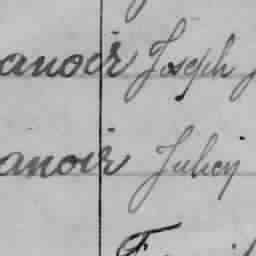 anoir Joseph
anoir Julien